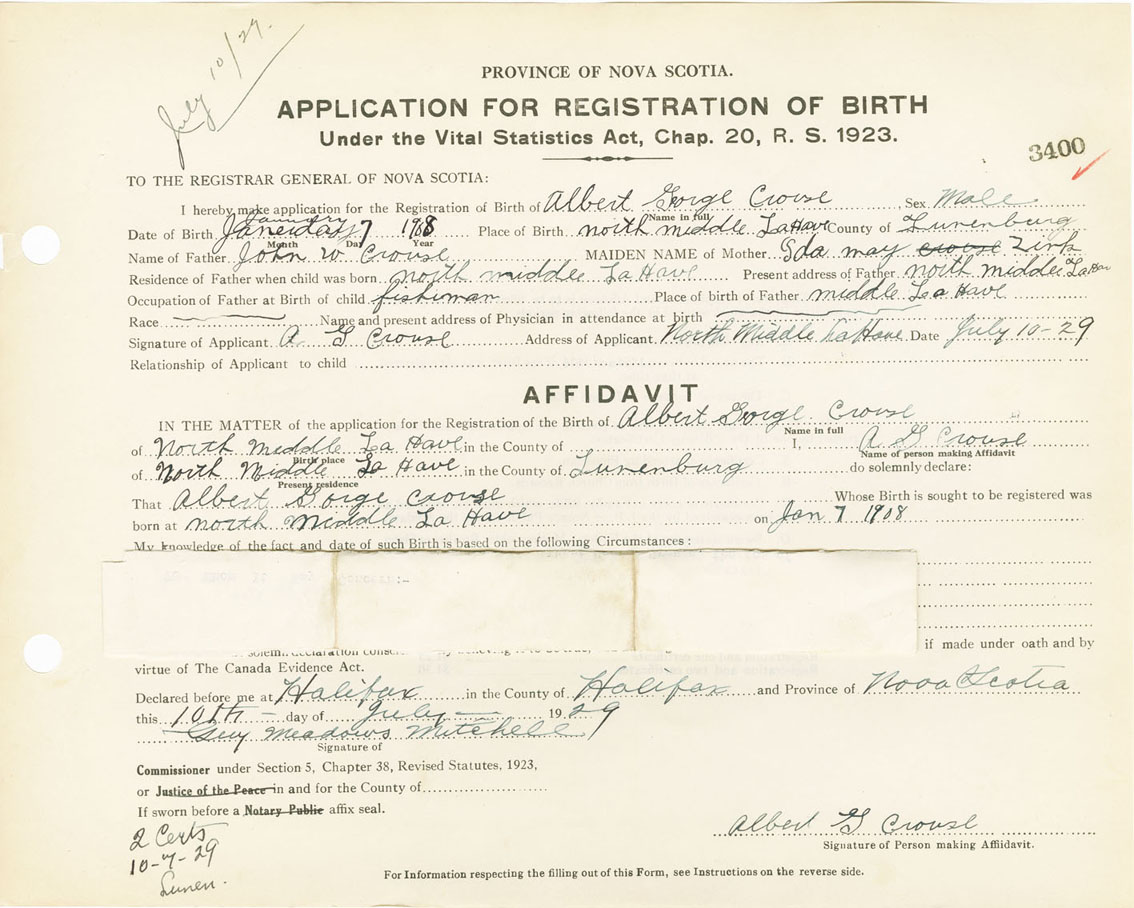 July 10/29.
PROVINCE OF NOVA SCOTIA.
APPLICATION FOR REGISTRATION OF BIRTH
Under the Vital Statistics Act, Chap. 20, R. S. 1923.
3400
TO THE REGISTRAR GENERAL OF NOVA SCOTIA:
I hereby make application for the Registration of Birth of Albert Gorge Crouse Sex Male
Name in full
Date of Birth January 7 1908 Place of Birth north middle La Have County of Lunenburg
Month Day Year
Name of Father John W Crouse MAIDEN NAME of Mother Ida may crouse Zink
Residence of Father when child was born north middle La Have Present address of Father north middle La Have
Occupation of Father at Birth of child fishiman Place of birth of Father middle La Have
Race Name and present address of Physician in attendance at birth
Signature of Applicant A. G Crouse Address of Applicant North Middle La Have Date July 10-29
Relationship of Applicant to child
AFFIDAVIT
IN THE MATTER of the application for the Registration of the Birth of Albert Gorge Crouse
Name in full
of North Middle La Have in the County of I A G Crouse
Birth place Name of person making Affidavit
of North Middle La Have in the County of Lunenburg do solemnly declare:
Present residence
That Albert Gorge Crouse Whose Birth is sought to be registered was
born at north Middle La Have on Jan 7 1908
My knowledge of the fact and date of such Birth is based on the following Circumstances :
solemn declaration if made under oath and by
virtue of The Canada Evidence Act.
Declared before me at Halifax in the County of Halifax and Province of Nova Scotia
this 10th day of July 1929
Guy Meadows Mitchell
Signature of
Commissioner under Section 5, Chapter 38, Revised Statutes, 1923,
or Justice of the Peace in and for the County of
If sworn before a Notary Public affix seal.
2 Certs
10-7-29
Lunen.
Albert G Crouse
Signature of Person making Affiidavit.
For Information respecting the filling out of this Form, see Instructions on the reverse side.